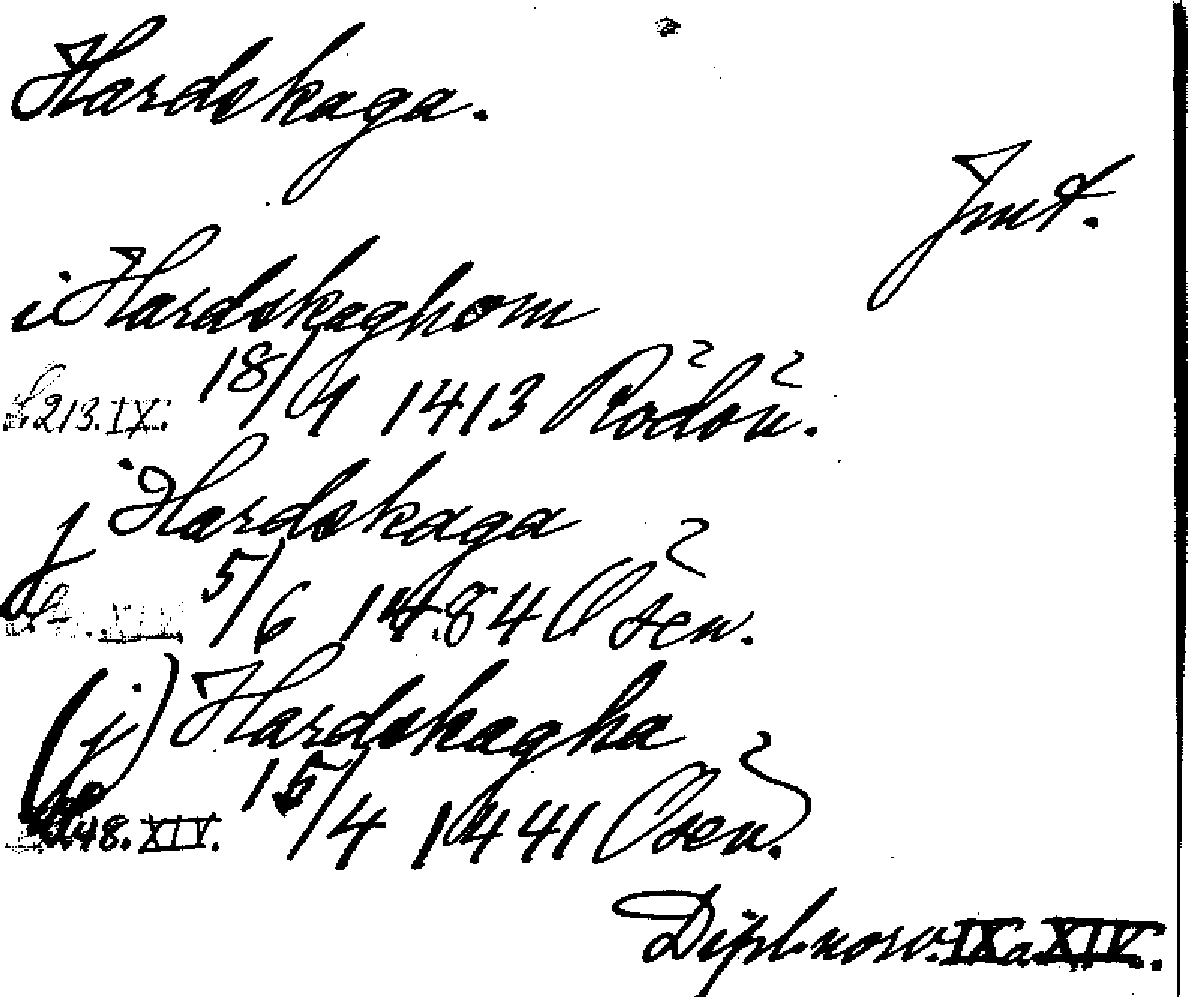 Hardskaga.
Jmt.
i Hardskaghom
s. 213. IX. 18/4 1413 Rödön.
j Hardskaga
5/6 1484 Osen.
(j) Hardskagha
148. XIV. 15/4 1441 Osen.
Dipl. norv. IX a XIV.